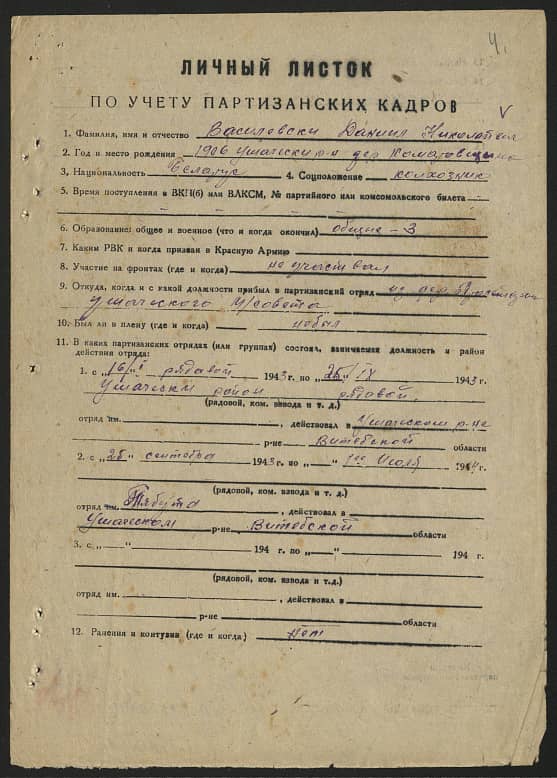 4.
ЛИЧНЫЙ ЛИСТОК
ПО УЧЕТУ ПАРТИЗАНСКИХ КАДРОВ
1. Фамилия, имя и отчество Василевски Даниил
2. Год и место рождения 1906 Ушачски р-н дер
3. Национальность Беларус 4. Соцположение колхозник
5. Время поступления в ВКП(б) или ВЛКСМ, № партийного или комсомольского билета
6. Образование: общее и военное (что и когда окончил) общие - 3
7. Каким РВК и когда призван в Красную Армию
8. Участие на фронтах (где и когда) не участвал
9. Откуда, когда и с какой должности прибыл в партизанский отряд из дер
ушачского с/совета
10. Был ли в плену (где и когда) небыл
11. В каких партизанских отрядах (или группах) состоял, занимаемая должность и район
действия отряда:
1. с „16/I рядавой 1943 г. по „25“ IX 1943 г.
Ушачски район рядавой.
(рядовой, ком. взвода и т. д.)
отряд им. , действовал в Ушачском р-не
р-не Витебской области
2. с „25“ сентебра 1943 г. по „ “ Июля 1944 г.
(рядовой, ком. взвода и т. д.)
отряд им. Тябута , действовал в
Ушачском р-не Витебской области
3. с „ “ 194 г. по „ “ 194 г.
(рядовой, ком. взвода и т. д.)
отряд им. , действовал в
р-не области
12. Ранения и контузии (где и когда) нет